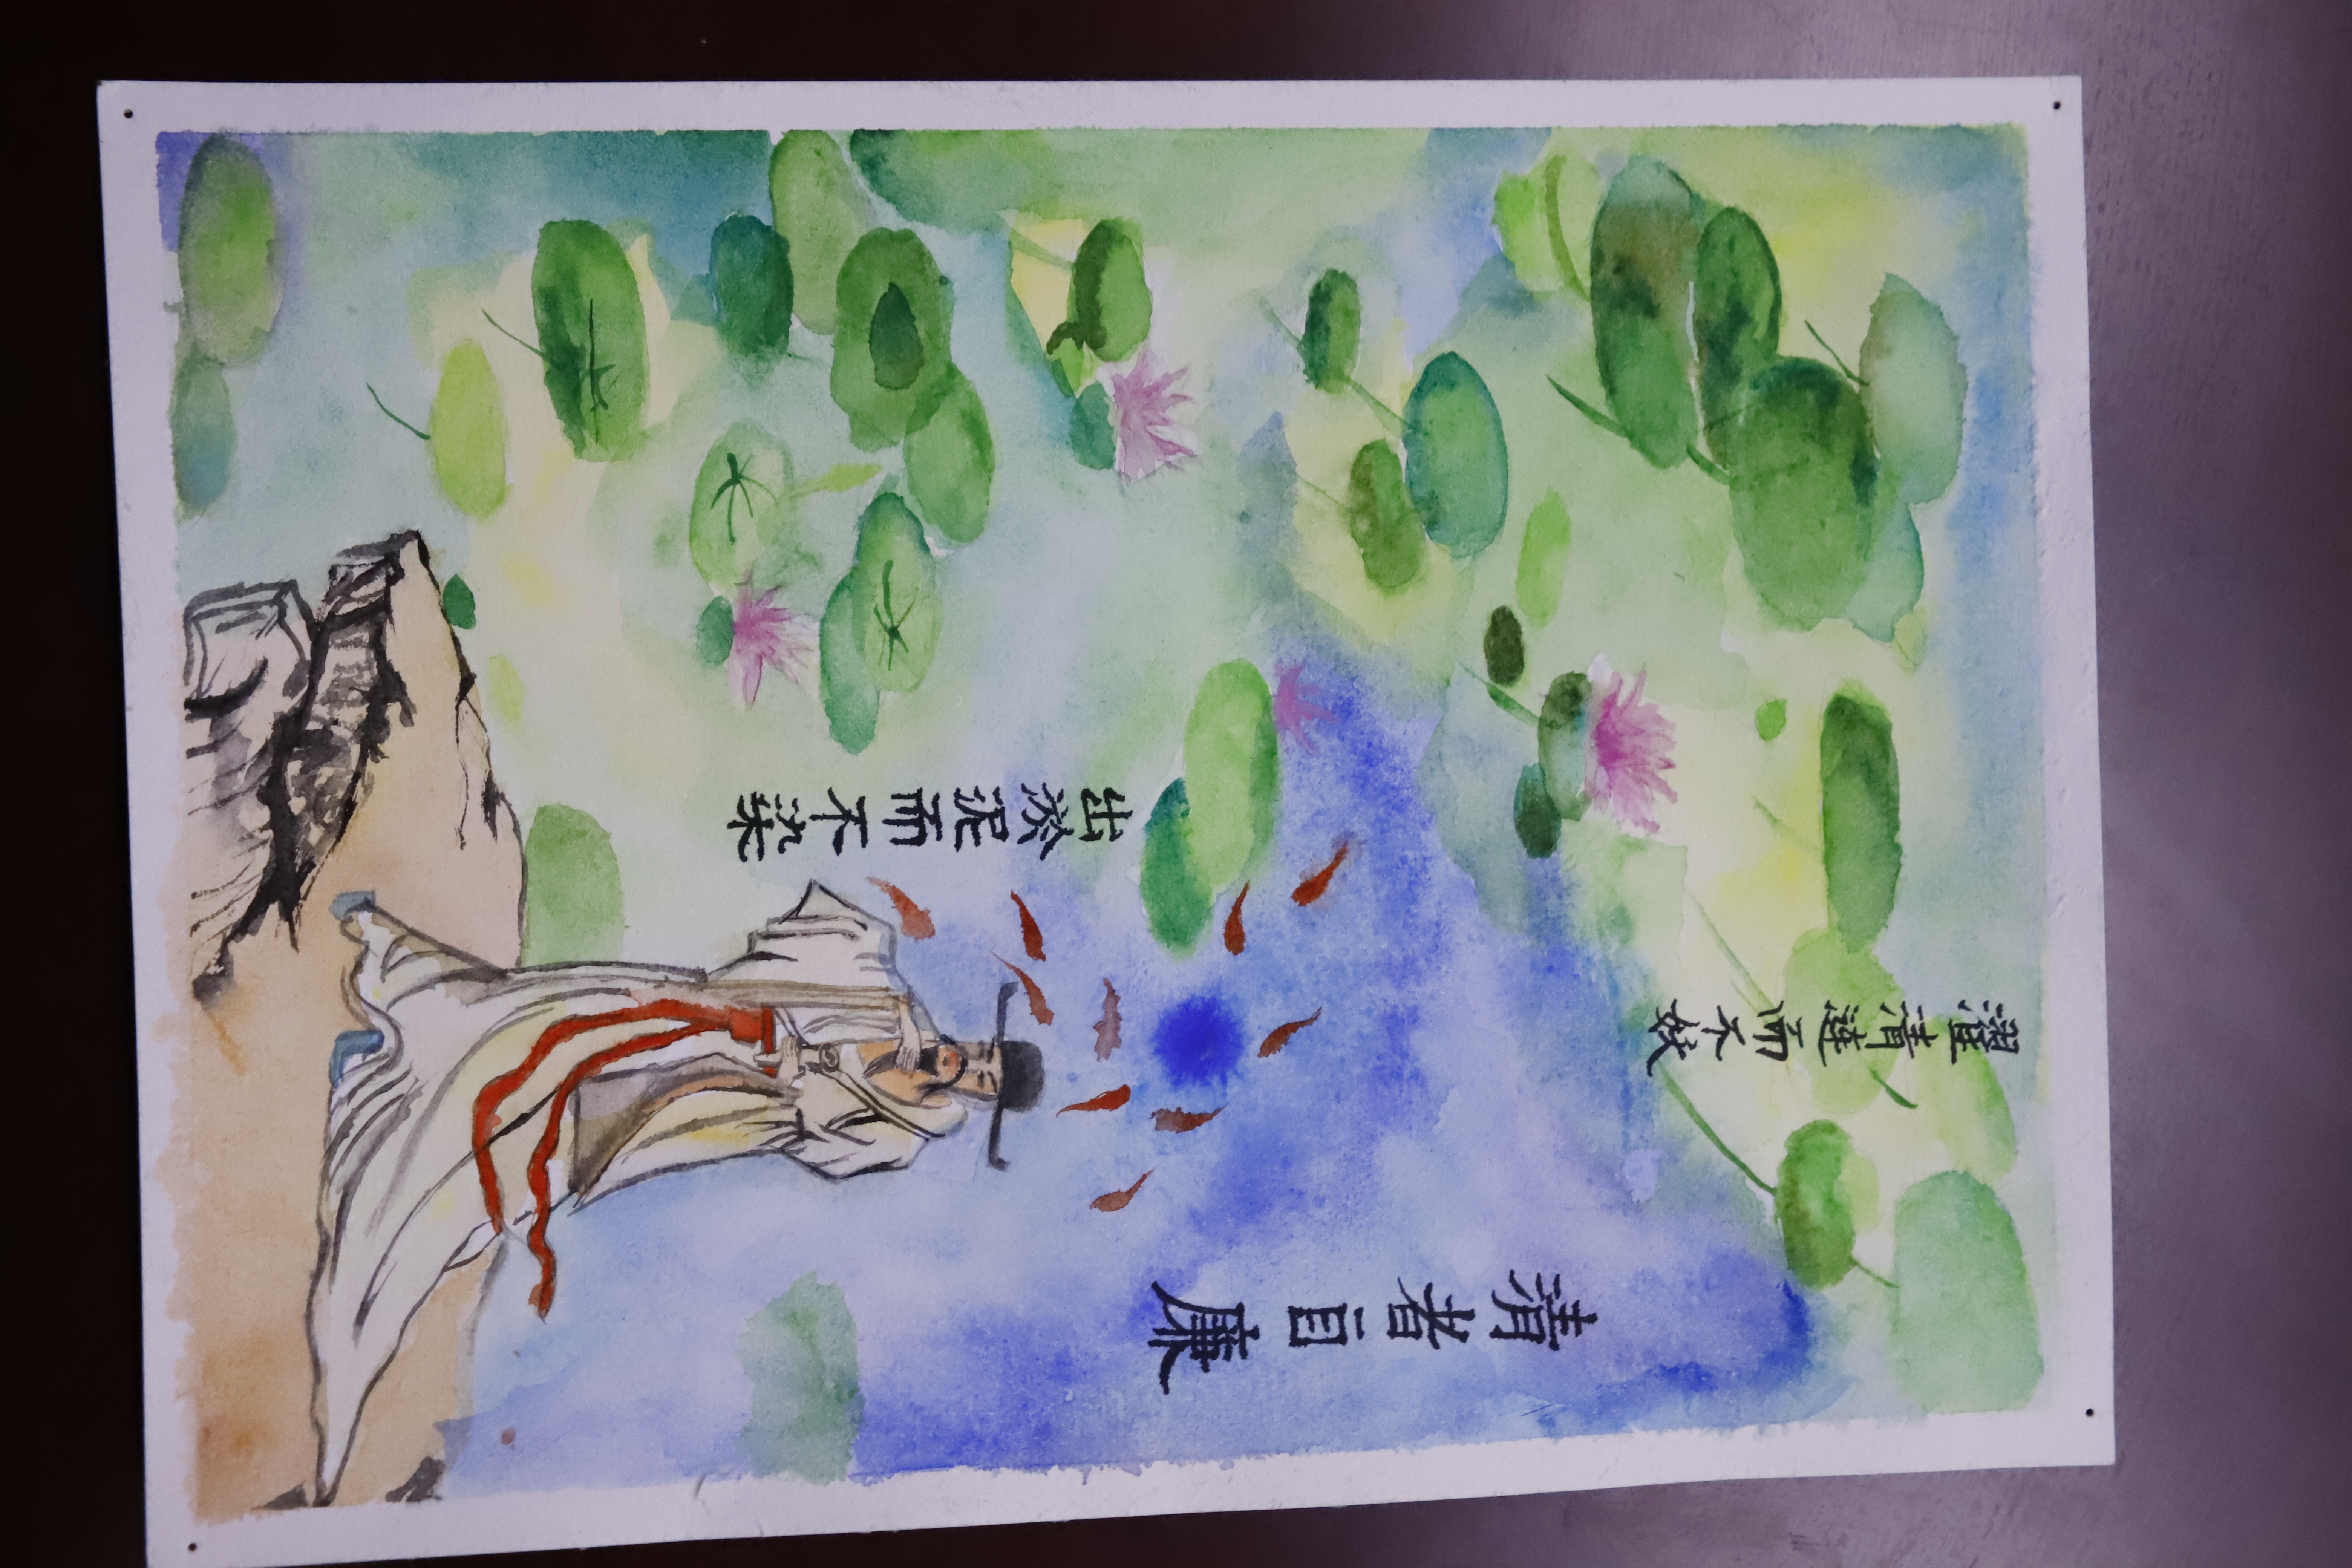 清者自廉
出淤泥而不染
濯清涟而不妖